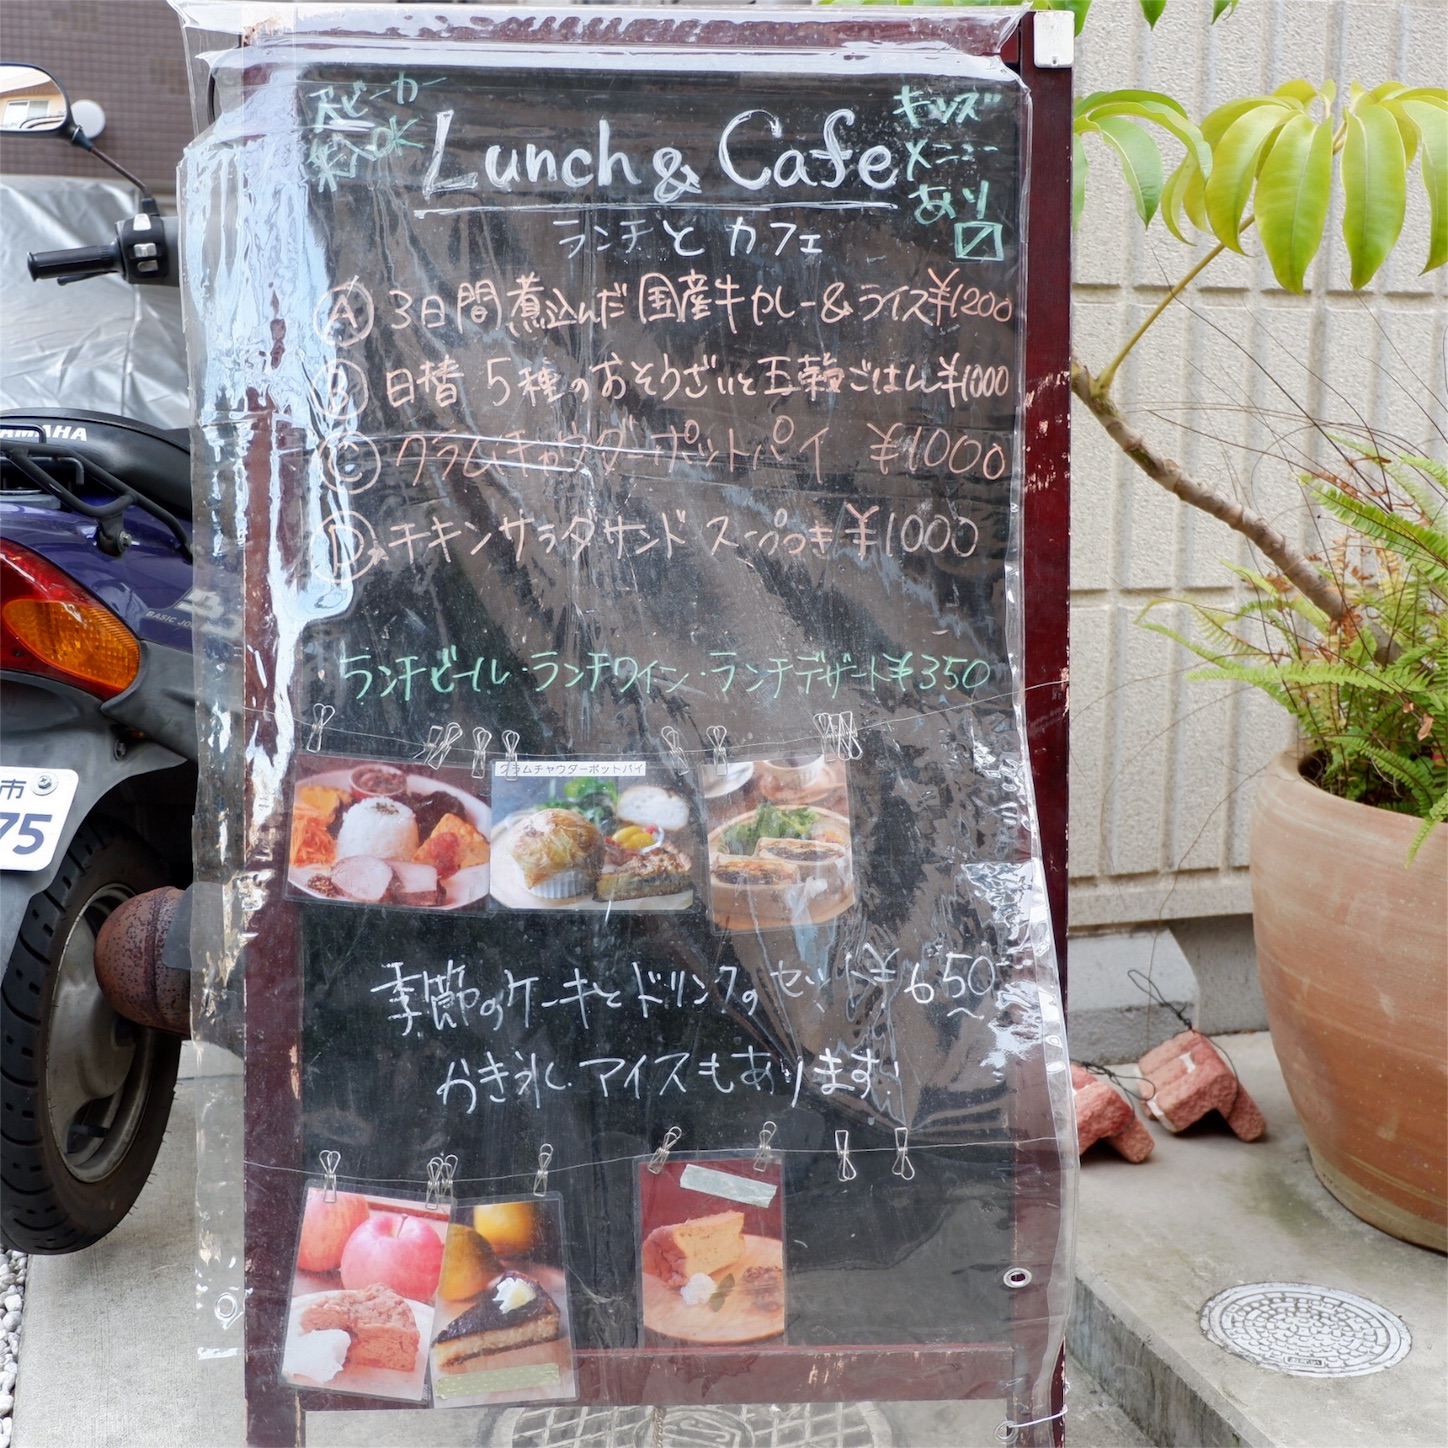 ベビーカー
OK
Lunch & Cafe
キッズ
メニュー
あり
ランチと カフェ
Ⓐ 3日間煮込んだ国産牛カレー&ライス ¥1200
Ⓑ 日替 5種のおそうざいと五穀ごはん ¥1000
Ⓒ クラムチャウダーポットパイ ¥1000
Ⓓ チキンサラダサンド スープつき ¥1000
ランチビール・ランチワイン・ランチデザート ¥350
クラムチャウダーポットパイ
季節のケーキとドリンクのセット ¥650~
かき氷、アイスもあります。
YAMAHA
BASIC JOG
市
75